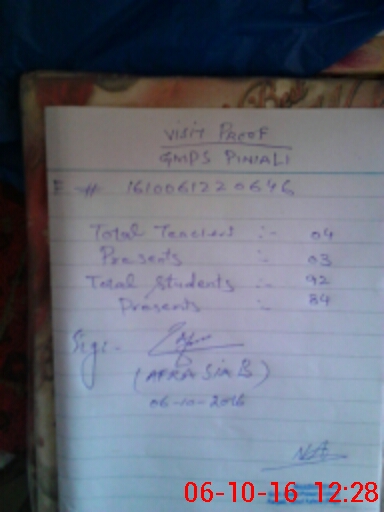 Visit Proof
GMPS PINJALI
E # 1610061220646
Total Teachers :- 04
Presents :- 03
Total Students :- 92
Presents :- 84
Sig:-
(AFRA SIAB)
06-10-2016
NA
06-10-16 12:28